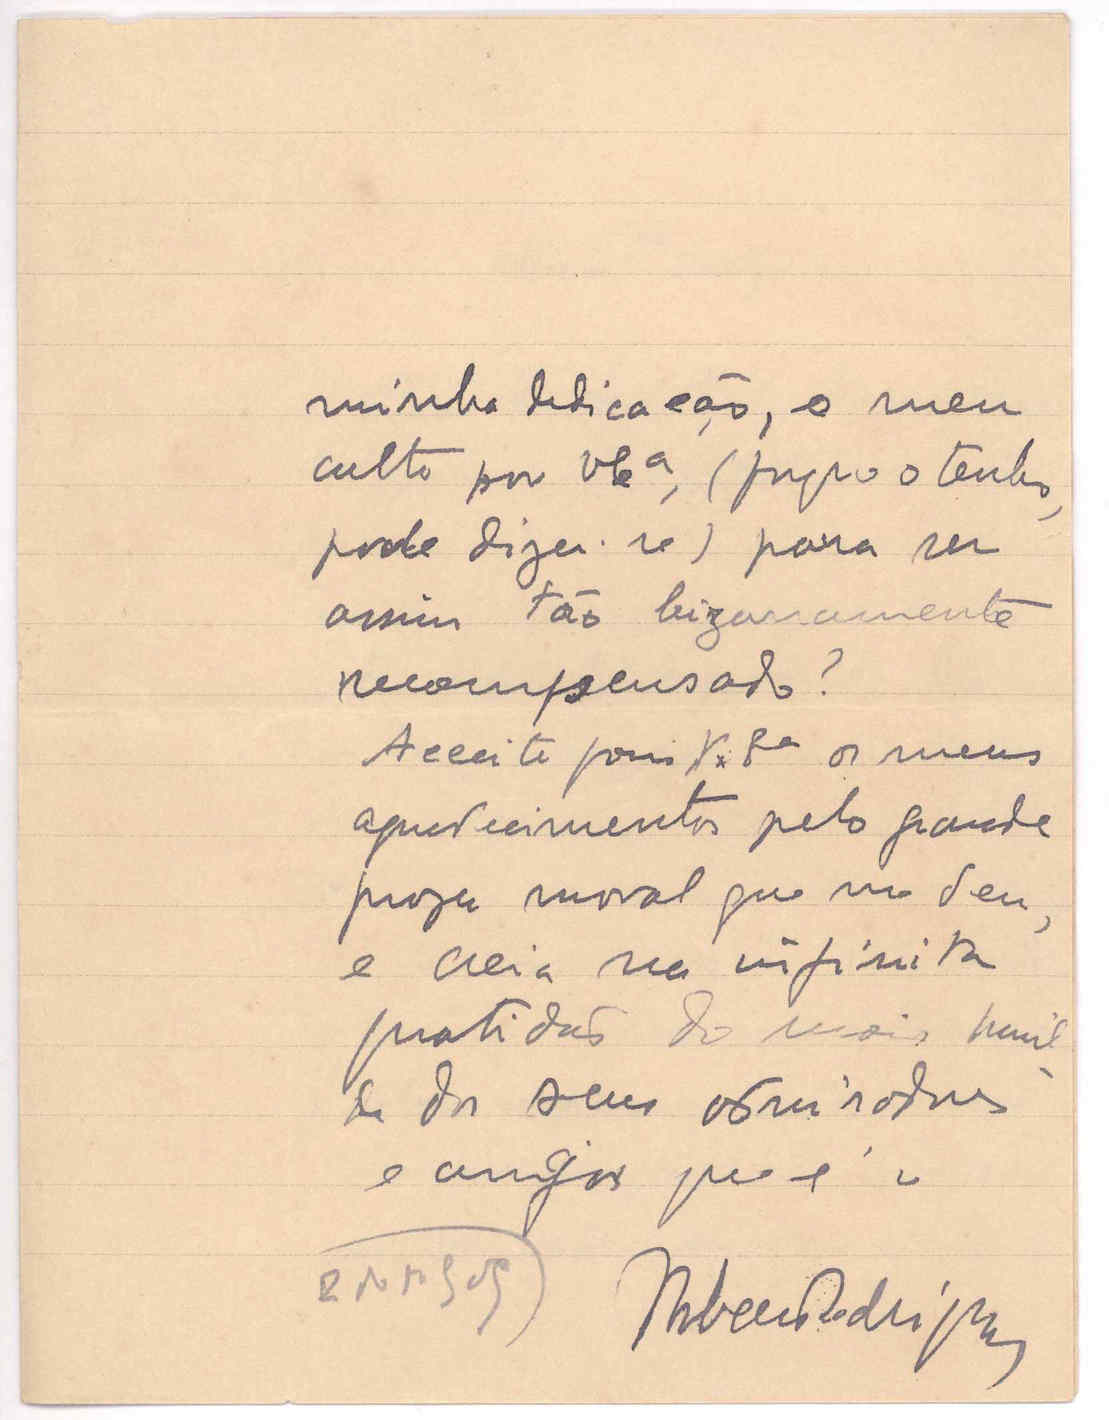 minha dedicação, o meu
culto por V. Exª, (porque o tenho,
pode dizer-se) para ser
assim tão bizarramente
recompensado?
Acceite pois V. Exª os meus
agradecimentos pelo grande
prazer moral que me deu,
e creia na infinita
gratidão do mais humil
de dos seus admiradores
e amigos que é o
Rodrigues